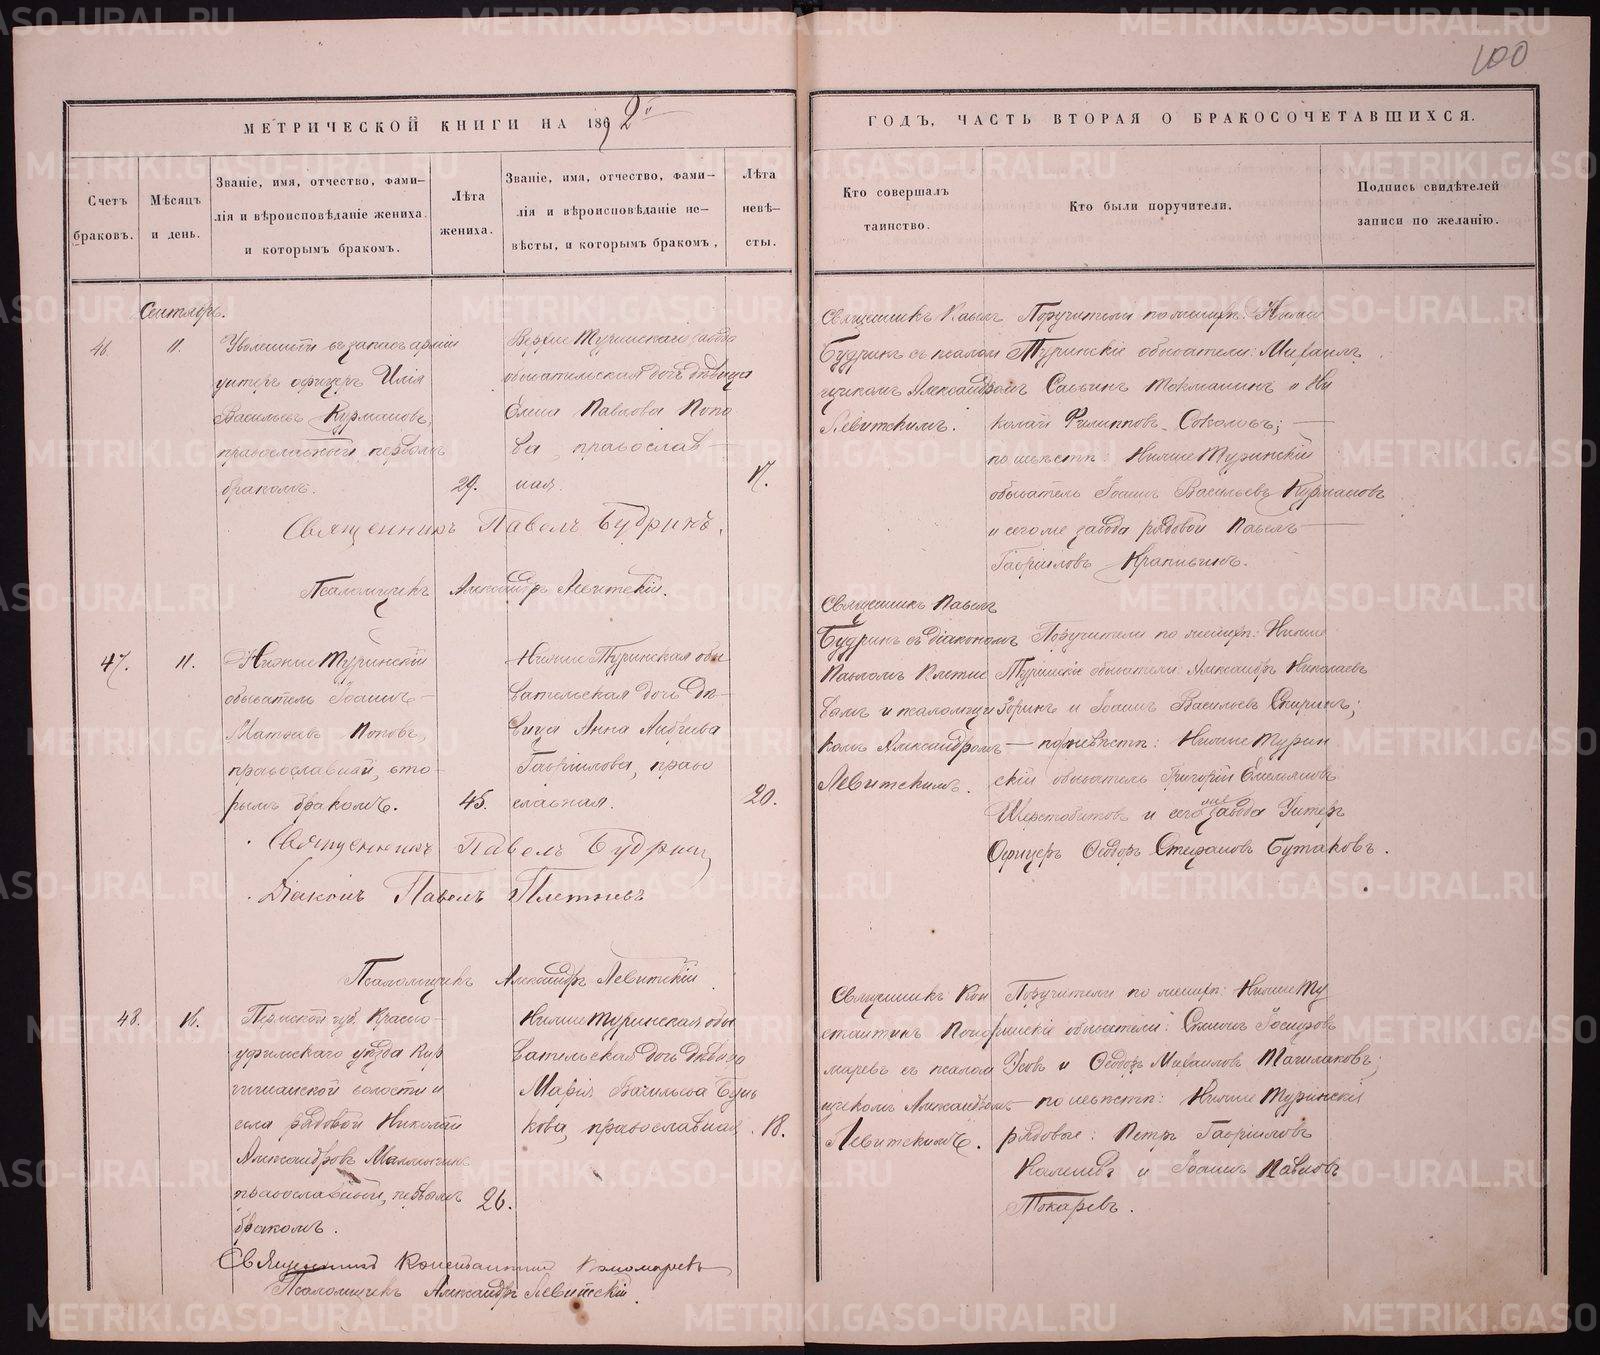 100
МЕТРИЧЕСКОЙ КНИГИ НА 1892й
ГОДЪ, ЧАСТЬ ВТОРАЯ О БРАКОСОЧЕТАВШИХСЯ.
Счетъ браковъ.
Мѣсяцъ и день.
Званіе, имя, отчество, фами-
лія и вѣроисповѣданіе жениха
и которымъ бракомъ.
Лѣта
жениха.
Званіе, имя, отчество, фами-
лія и вѣроисповѣданіе не-
вѣсты, и которымъ бракомъ,
Лѣта
невѣ-
сты.
Кто совершалъ
таинство.
Кто были поручители.
Подпись свидѣтелей
записи по желанію.
Сентябрь.
46.
11.
Уволенный въ запасъ арміи
унтеръ офицеръ Илія
Васильевъ Курмановъ,
православный, первымъ
бракомъ.
29.
Верхне Туринскаго завода
обывательская дочь дѣвица
Елена Павлова Попо
ва, православ-
ная.
17.
Священникъ Павелъ
Будринъ съ псалом
щикомъ Александромъ
Левитскимъ.
Поручители по женихѣ: Нижне
Туринскіе обыватели: Михаилъ
Савинъ Токманинъ и Ни
колай Филипповъ Соколовъ;
по невѣстѣ: Нижне Туринскій
обыватель Іоаннъ Васильевъ Курмановъ
и сего же завода рядовой Павелъ
Гавріиловъ Крапивинъ.
Священникъ Павелъ Будринъ.
Псаломщикъ Александръ Левитскій.
47.
11.
Нижне Туринскій
обыватель Іоаннъ
Матѳіевъ Поповъ,
православный, вто-
рымъ бракомъ.
45.
Нижне Туринская обы
вательская дочь дѣ-
вица Анна Андреева
Гаврилова, право
славная.
20.
Священникъ Павелъ
Будринъ съ діакономъ
Павломъ Плетне
вымъ и псаломщи
комъ Александромъ
Левитскимъ.
Поручители по женихѣ: Нижне
Туринскіе обыватели: Александръ Николаевъ
Зоринъ и Іоаннъ Васильевъ Спиринъ;
по невѣстѣ: Нижне Турин
скій обыватель Григорій Емельяновъ
Шерстобитовъ и сего же завода Унтеръ
Офицеръ Ѳеодоръ Стефановъ Бутаковъ.
Священникъ Павелъ Будринъ
Діаконъ Павелъ Плетневъ
Псаломщикъ Александръ Левитскій.
48.
16.
Пермской губ. Красно-
уфимскаго уѣзда Кир
гишанской волости и
села рядовой Николай
Александровъ
православный, первымъ
бракомъ.
26.
Нижне Туринская обы
вательская дочь дѣвица
Марія Васильева
кова, православная.
18.
Священникъ Кон
стантинъ Поно
маревъ съ псалом
щикомъ Александромъ
Левитскимъ.
Поручители по женихѣ: Нижне Ту
ринскіе обыватели: Симеонъ Іосифовъ
Усовъ и Ѳеодоръ Михаиловъ
по невѣстѣ: Нижне Туринскіе
рядовые: Петръ Гавріиловъ
и Іоаннъ Павловъ
Токаревъ.
Священникъ Константинъ Пономаревъ
Псаломщикъ Александръ Левитскій.
METRIKI.GASO-URAL.RU